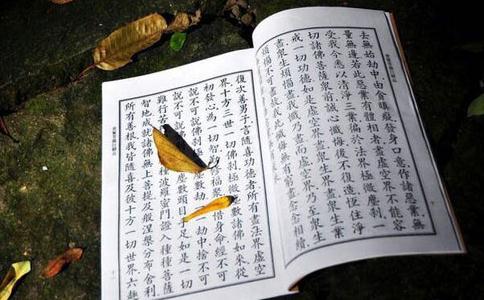 去無始劫中由貪瞋癡發身口意作諸惡業無
量無邊若此惡業有體相者盡虛空界不能容
受我今悉以清淨三業徧於法界極微塵剎一
切諸佛菩薩眾前誠心懺悔後不復造恆住淨
戒一切功德如是虛空界盡眾生界盡眾生業
盡眾生煩惱盡我懺乃盡而虛空界乃至眾生
煩惱不可盡故我此懺悔無有窮盡念念相續
復次善男子言隨喜功德者所有盡法界虛空
界十方三世一切佛剎極微塵數諸佛如來從
初發心為一切智修福聚不惜身命經不可
說不可說佛剎極微塵數劫劫中捨不可
說不可說佛剎極微塵數頭目手足如是一切
難行苦種波羅蜜門證入種種菩薩
智地成就諸佛無上菩提及般涅槃分布舍利
所有善根我皆隨喜及彼十方一切世界六趣